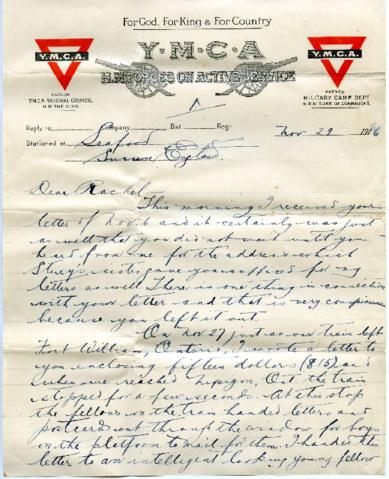 For God, For King & For Country
Y.M.C.A.
Y.M.C.A
Y.M.C.A.
H.M. FORCES ON ACTIVE SERVICE
PATRON
Y.M.C.A. NATIONAL COUNCIL
H.M. THE KING.
PATRON
MILITARY CAMP DEPT
H.R.H. DUKE OF CONNAUGHT.
Reply to Company Bat. Reg:
Nov 29 1916
Stationed at Seaford
Sussex England.
Dear Rachel
This morning I received your
letter of Nov 6 and it certainly was just
as well that you did not wait until you
heard from me for the address which
gave you for my
letters as well. There is one thing in connection
with your letter and that is very conspicuous
because you left it out
On Nov 27 just as our train left
Fort William, Ontario, I wrote a letter to
you enclosing fifteen dollars ($15) and
when we reached Nipigon, Ont. the train
stopped for a few seconds. At this stop
the fellows on the train handed letters and
postcards out through the window for boys
on the platform to mail for them. I handed this
letter to an intelligent looking young fellow